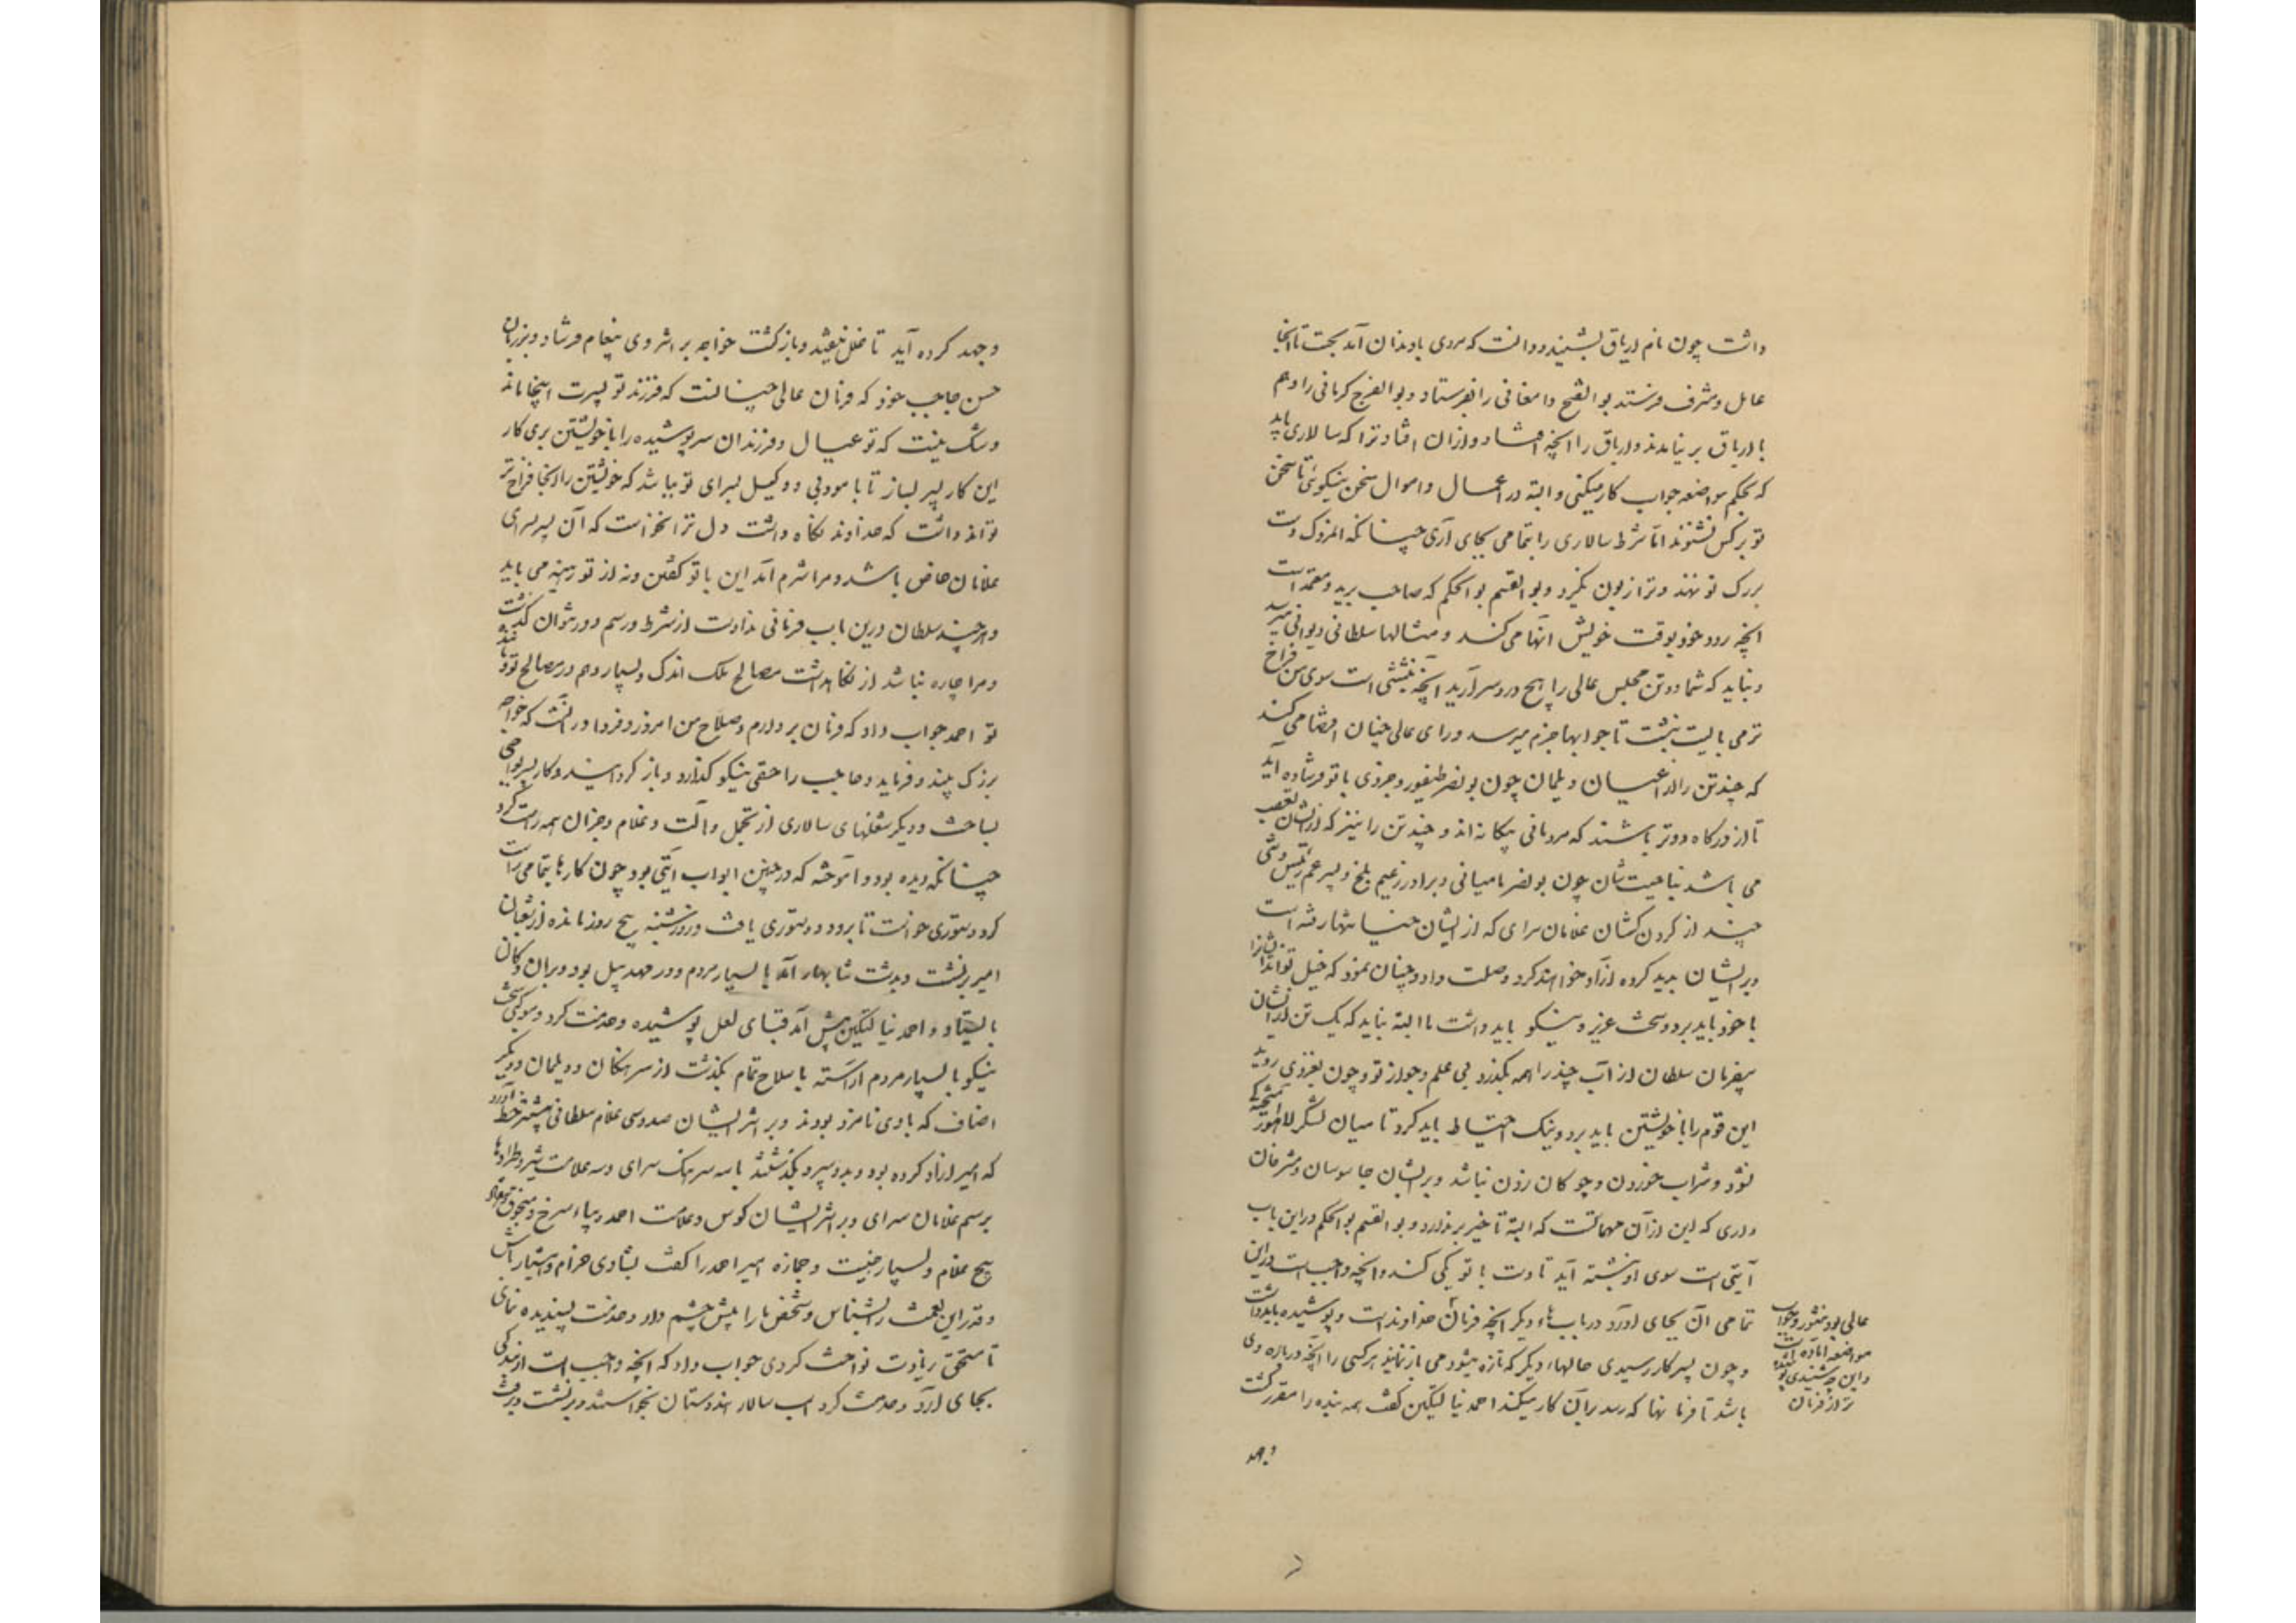 داشت چون نام اریاق بشنید و دانست که مردی با دندان آمد بخت تا آنجا
عامل و مشرف فرستد بوالفتح دامغانی را بفرستاد و بوالفرج کرمانی را و هم
با اریاق برنیامدند و اریاق را آنچه افتاد و از آن افتاد ترا که سالاری باید
که بحکم مواضعه جواب کار میکنی و البته در اعمال و اموال سخن نیکوئی تا سخن
تو بر کس نشنوند اما شرط سالاری را بتمامی بجای آری چنانکه آن مردک دست
بر رگ تو ننهد و ترا زبون نگیرد و بوالقسم بوالحکم که صاحب برید و معتمد است
آنچه رود خود بوقت خویش انها می کند و مثالها سلطانی و دیوانی میرسد
و نباید که شما دو تن مجلس عالی را هیچ درد سر آرید آنچه نبشتنی است سوی من فراخ
تر می بایست نبشت تا جوابها جزم میرسد و رای عالی چنان اقتضا می کند
که چند تن را از اعیان دیلمان چون بونصر طیفور و جزوی با تو فرستاده آید
تا از درگاه دورتر باشند که مردمانی بیگانه اند و چند تن را نیز که از ایشان تعصب
می باشد بناحیت شان چون بونصر بامیانی و برادر زعیم بلخ و پسر عم رئیس و تنی
چند از گردن کشان غلامان سرای که از ایشان خیانتها رفته است
و بر ایشان پدید کرده آزاد خواهند کرد و صلت داد و چنان نمود که خیل تواند ایشانرا
با خود باید برد و سخت عزیز و نیکو باید داشت اما البته نباید که یک تن از ایشان
بیفرمان سلطان از آب چندراهه بگذرد بی علم و جواز تو و چون بغزوی روید
این قوم را با خویشتن باید برد و نیک احتیاط باید کرد تا میان لشکر لاهور آمیخته
نشود و شراب خوردن و چوگان زدن نباشد و بر ایشان جاسوسان و مشرفان
داری که این از آن مهماتست که البته تاخیر برندارد و بوالقسم بوالحکم در این باب
آیتی است سوی او نبشته آید تا دست با تو یکی کند و آنچه واجب است در این
تمامی آن بجای آورد در بابهاء دیگر آنچه فرمان خداوند است و پوشیده باید داشت
و چون بسر کار رسیدی حالهاء دیگر که تازه میشود می باز نمایند هر کسی را آنچه در باره وی
باشد تا فرمانها که رسد بر آن کار میکند احمد نیالتگین گفت همه بنده را مقرر گشت
عالی بود منثور و جواب
مواضعه آماده است
و این چه شنیدی
تر از فرمان
و جهد
و جهد کرده آید تا خلل نیفتد و بازگشت خواجه بر اثر وی پیغام فرستاد بر زبان
حسن حاجب خود که فرمان عالی چنانست که فرزند تو پسرت اینجا ماند
و شک نیست که تو عیال و فرزندان سرپوشیده را با خویشتن بری کار
این کار پسر بساز تا با مودبی و وکیل بسرای تو بباشد که خویشتن را آنجا فراخ تر
تواند داشت که خداوند نگاه داشت دل ترا نخواست که آن پسر بسرای
غلامان خاص باشد و مرا شرم آمد این با تو گفتن و نه از تو رهینه می باید
و هر چند سلطان درین باب فرمانی نداده است از شرط و رسم در نتوان گذشت
و مرا چاره نباشد از نگاهداشت مصالح ملک اندک و بسیار و هم در مصالح تو و مانند
تو احمد جواب داد که فرمان بردارم و صلاح من امروز و فردا در آنست که خواجه
بزرگ بیند و فرماید و حاجب را حقی نیکو گذارد و باز گردانید و کار پسر بواجبی
بساخت و دیگر شغلهای سالاری از تجمل و آلت و غلام و جز آن همه راست کرد
چنانکه دیده بود و آموخته که در چنین ابواب آیتی بود چون کارها بتمامی راست
کرد دستوری خواست تا برود و دستوری یافت و روز شنبه پنج روز مانده از شعبان
امیر برنشست و بدشت شابهار آمد با بسیار مردم و در مهد پیل بود و بر آن دکان
بایستاد و احمد نیالتگین پیش آمد قبای لعل پوشیده و خدمت کرد و موکبی سخت
نیکو با بسیار مردم آراسته با سلاح تمام بگذشت از سرهنگان و دیلمان و دیگر
اصناف که با وی نامزد بودند و بر اثر ایشان صد و سی غلام سلطانی بیشتر خط آورد
که امیر آزاد کرده بود و بدو سپرد بگذشتند با سه سرهنگ سرای و سه علامت شیر و طرادها
برسم غلامان سرای و بر اثر ایشان کوس و علامت احمد دیباء سرخ و منجوق و هفتاد
پنج غلام و بسیار جنیبت و جمازه امیر احمد را گفت بشادی خرام و هشیار باش
و قدر این نعمت را بشناس و شخص ما را پیش چشم دار و خدمت پسندیده نمای
تا مستحق زیادت نواخت گردی جواب داد که آنچه واجب است از بندگی
بجای آرد و خدمت کرد اسب سالار هندوستان بخواستند و برنشست و برفت